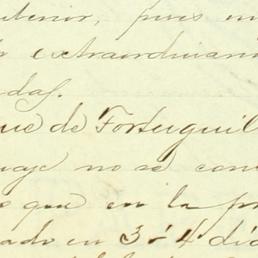 terior, pues en
extraordinari
das.
que de Fortuguil
uaje no se con
s que en la pr
ado en 3 ó 4 dí